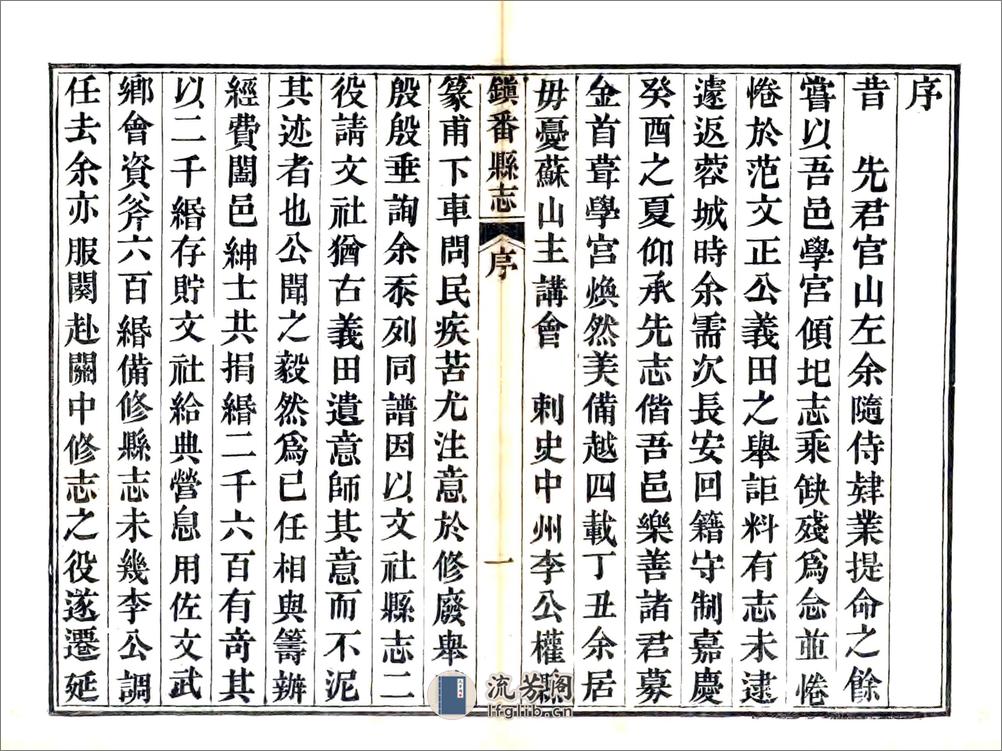 序
昔　先君官山左余隨侍肄業提命之餘
嘗以吾邑學宮傾圮志乘缺殘爲念並惓
惓於范文正公義田之舉詎料有志未逮
遽返蓉城時余需次長安回籍守制嘉慶
癸酉之夏仰承先志偕吾邑樂善諸君募
金首葺學宮煥然美備越四載丁丑余居
毋憂蘇山主講會　刺史中州李公權縣
鎮番縣志
序
一
篆甫下車問民疾苦尤注意於修廢舉
殷殷垂詢余忝列同譜因以文社縣志二
役請文社猶古義田遺意師其意而不泥
其迹者也公聞之毅然爲已任相與籌辦
經費闔邑紳士共捐緡二千六百有奇其
以二千緡存貯文社給典營息用佐文武
鄉會資斧六百緡備修縣志未幾李公調
任去余亦服闋赴關中修志之役遂遷延
流芳閣
lfglib.cn